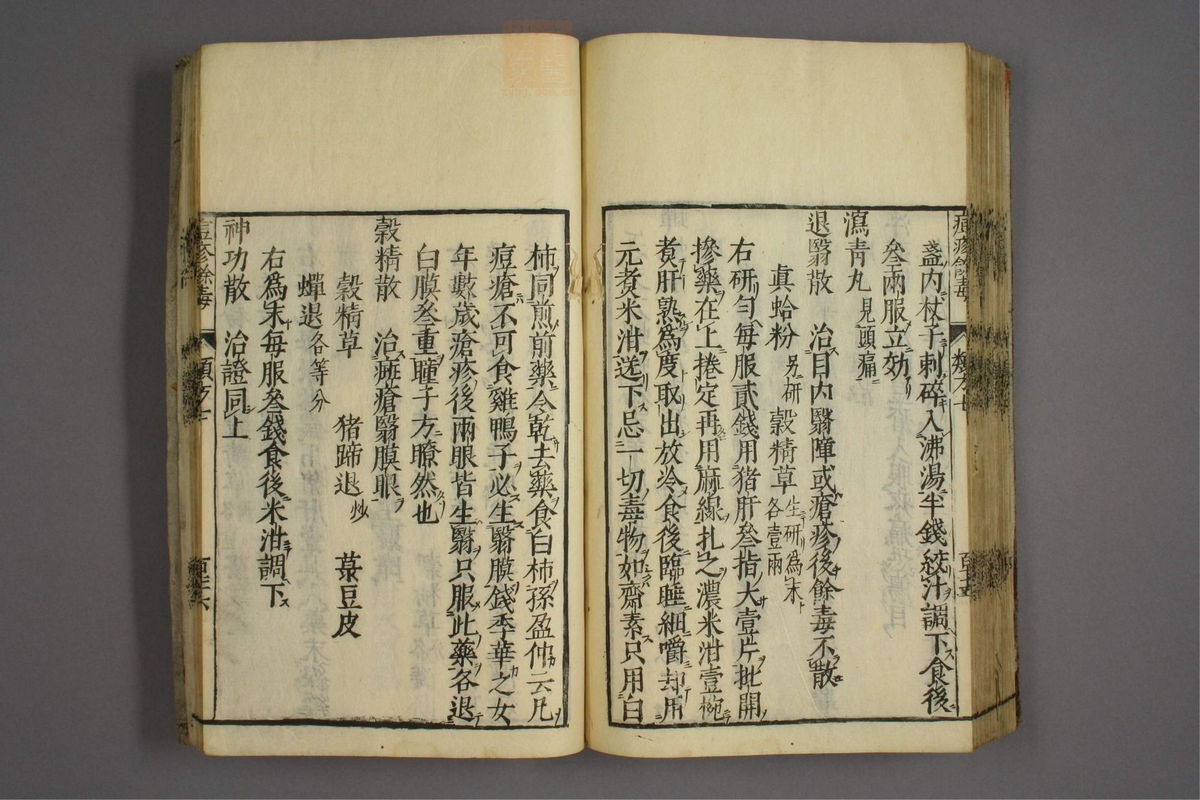 盞内杖子刺碎入沸湯半錢絞汁調下食後
叁兩服立効
瀉青丸 見頭痛
退翳散 治目内翳障或瘡疹後餘毒不散
真蛤粉 另研 穀精草 生研爲末各壹兩
右研匀每服貳錢用猪肝叁指大壹片批開
摻藥在上捲定再用麻線扎之濃米泔壹椀
煑肝熟爲度取出放冷食後臨睡細嚼却用
元煑米泔送下忌一切毒物如齋素只用白
柿同煎前藥令乾去藥食白柿孫盈仲云凡
痘瘡不可食雞鴨子必生翳膜錢季華之女
年數歲瘡疹後兩眼皆生翳只服此藥各退
白膜叁重瞳子方瞭然也
穀精散 治癍瘡翳膜眼
穀精草 猪蹄退 炒 菉豆皮
蟬退 各等分
右爲末每服叁錢食後米泔調下
神功散 治證同上